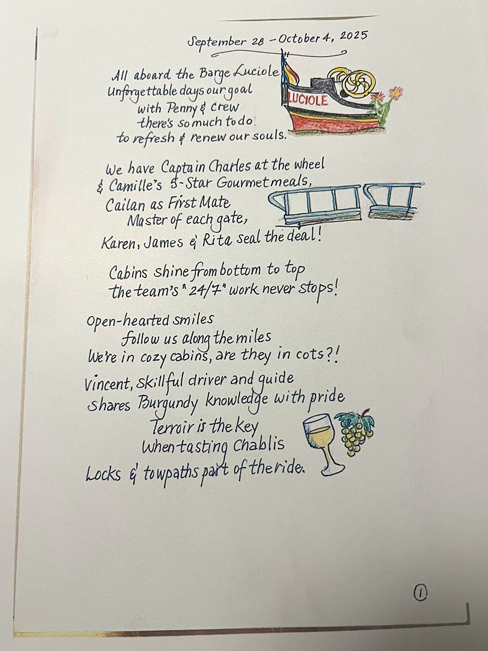 September 28 - October 4, 2025
All aboard the Barge Luciole
Unforgettable days our goal
with Penny & Crew
there's so much to do
to refresh & renew our souls.
LUCIOLE
We have Captain Charles at the wheel
& Camille's 5-Star Gourmet meals,
Cailan as First Mate
Master of each gate,
Karen, James & Rita seal the deal!
Cabins shine from bottom to top
the team's "24/7" work never stops!
Open-hearted smiles
follow us along the miles
We're in cozy cabins, are they in cots?!
Vincent, skillful driver and guide
shares Burgundy knowledge with pride
Terroir is the key
When tasting Chablis
Locks & towpaths part of the ride.
1